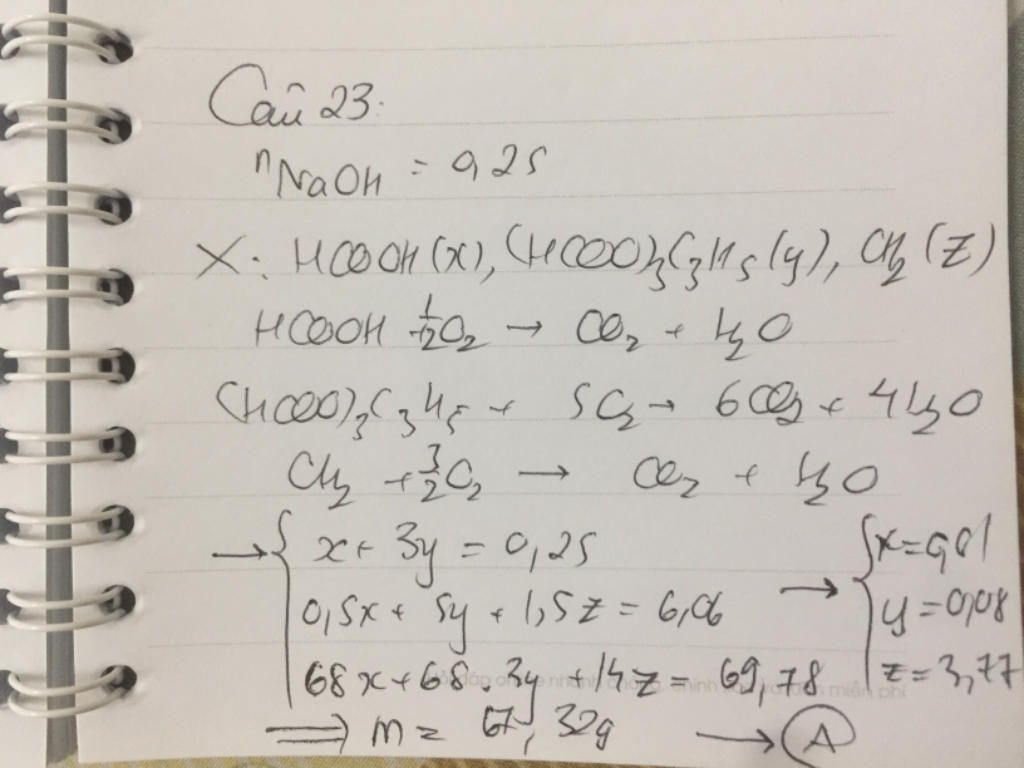 Câu 23:
nNaOH = 0,25
X: HCOOH (x), (HCOO)₃C₃H₅ (y), CH₂ (z)
HCOOH + 1/2 O₂ → CO₂ + H₂O
(HCOO)₃C₃H₅ + 5O₂ → 6CO₂ + 4H₂O
CH₂ + 3/2 O₂ → CO₂ + H₂O
→ { x + 3y = 0,25
0,5x + 5y + 1,5z = 6,06
68x + 68.3y + 14z = 69,78
→ { x = 0,01
y = 0,08
z = 3,77
⟹ m = 67,32g → A